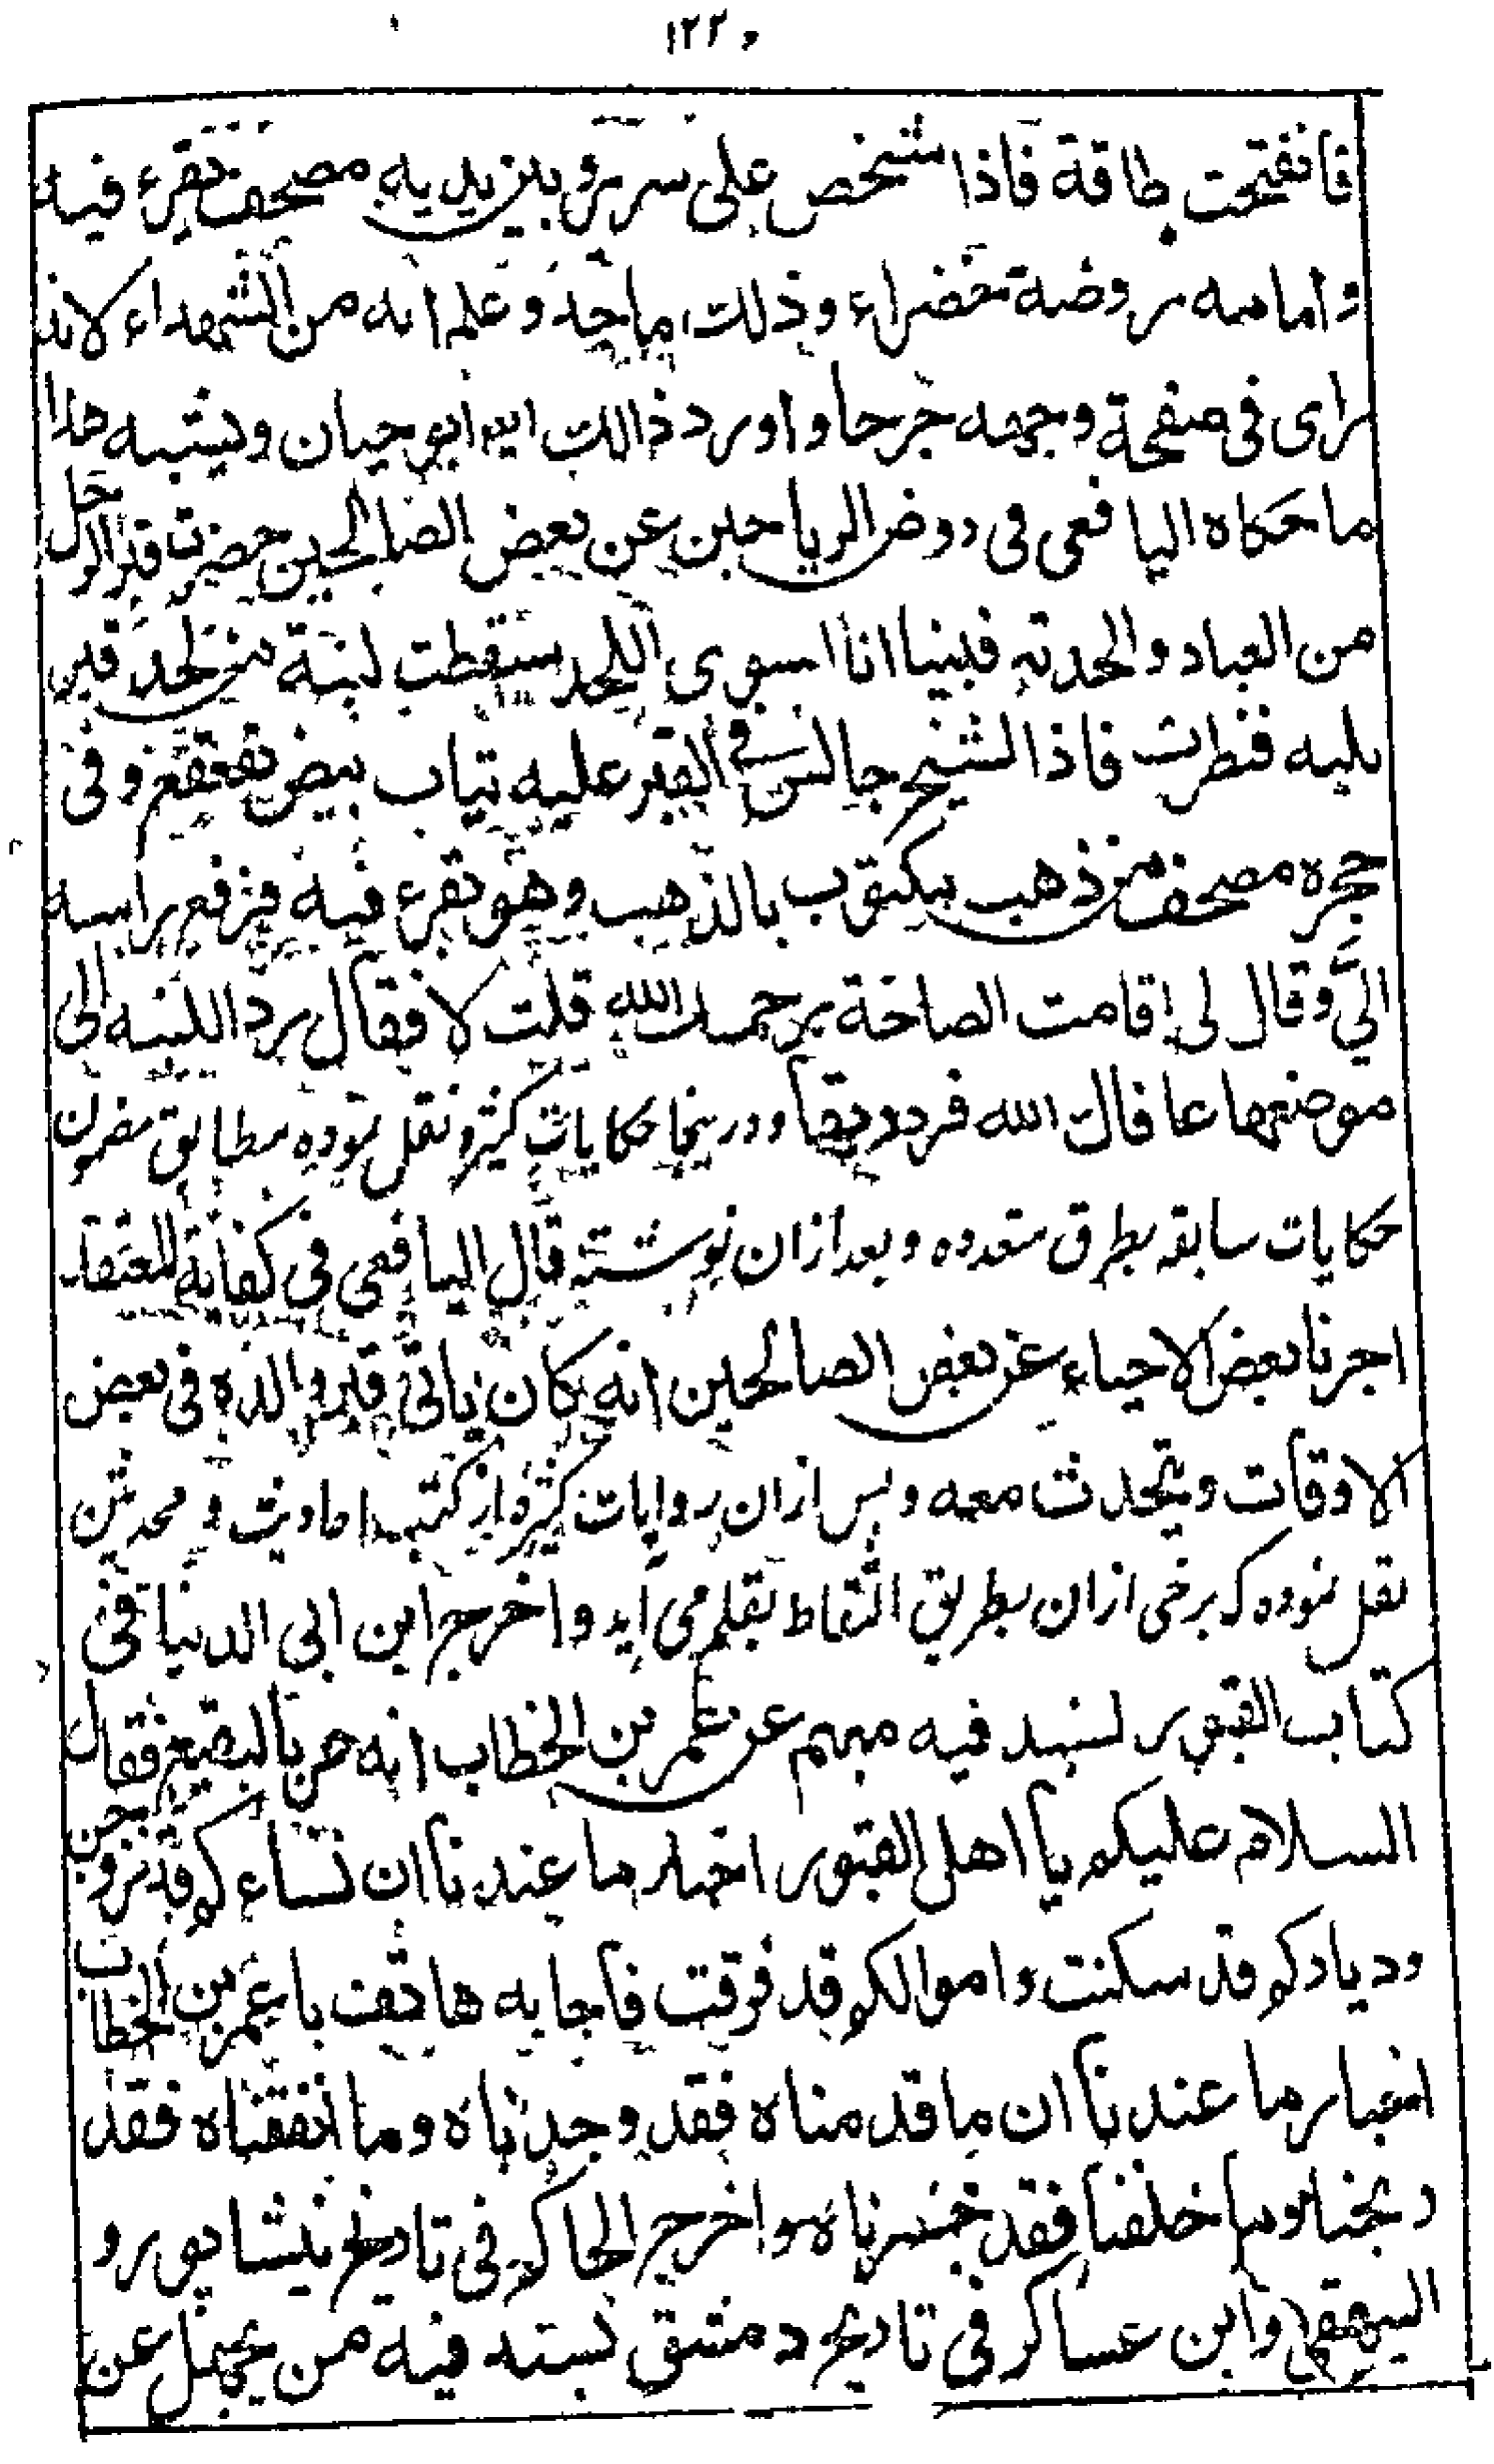 ١٢٢٠
فانفتحت طاقة فاذا شخص على سرير و بين يديه مصحف تقرء فيه
و امامه روضة خضراء و ذلك باحد و علم انه من الشهداء لانه
رای فی صفحة وجهه جرحا و اورد ذالك ابو حیان و یشبه هذا
ما حكاه الیافعی فی روض الریاحین عن بعض الصالحین حضرت قبر الرجل
من العباد و الحدته فبینا انا اسوی اللحد سقطت لبنة من لحد قبر
یلیه فنظرت فاذا الشیخ جالس فی القبر علیه ثیاب بیض تقعقع و فی
حجره مصحف من ذهب مكتوب بالذهب و هو تقرء فیه فرفع راسه
الیَّ و قال لی اقامت الصاخة یرحمك الله قلت لا فقال رد اللبنه الی
موضعها عافاك الله فرددتها و در ینجا حكایات كثیره نقل نموده مطابق مضمون
حكایات سابقه بطرق متعدده و بعد ازان نوشته قال الیافعی فی كفایة المعتقد
اخبرنا بعض الاحیاء عن بعض الصالحین انه كان یاتی قبر والده فی بعض
الاوقات و یتحدث معه و پس ازان روایات كثیره از كتب احادیث و محدثین
نقل نموده كه برخی ازان بطریق التقاط بقلم می اید و اخرج ابن ابی الدنیا فی
كتاب القبور لسند فیه مبهم عن عمر بن الخطاب انه مر بالبقیع فقال
السلام علیكم یا اهل القبور اخبار ما عندنا ان نساءكم قد تزوجن
و دیاركم قد سكنت و اموالكم قد فرقت فاجابه هاتف یا عمر بن الخطاب
اخبار ما عندنا ان ما قدمناه فقد وجدناه و ما انفقناه فقد
ربحنا و ما خلفنا فقد خسرناه و اخرج الحاكم فی تاریخ نیشاپور و
البیهقی و ابن عساكر فی تاریخ دمشق بسند فیه من یجهل عن